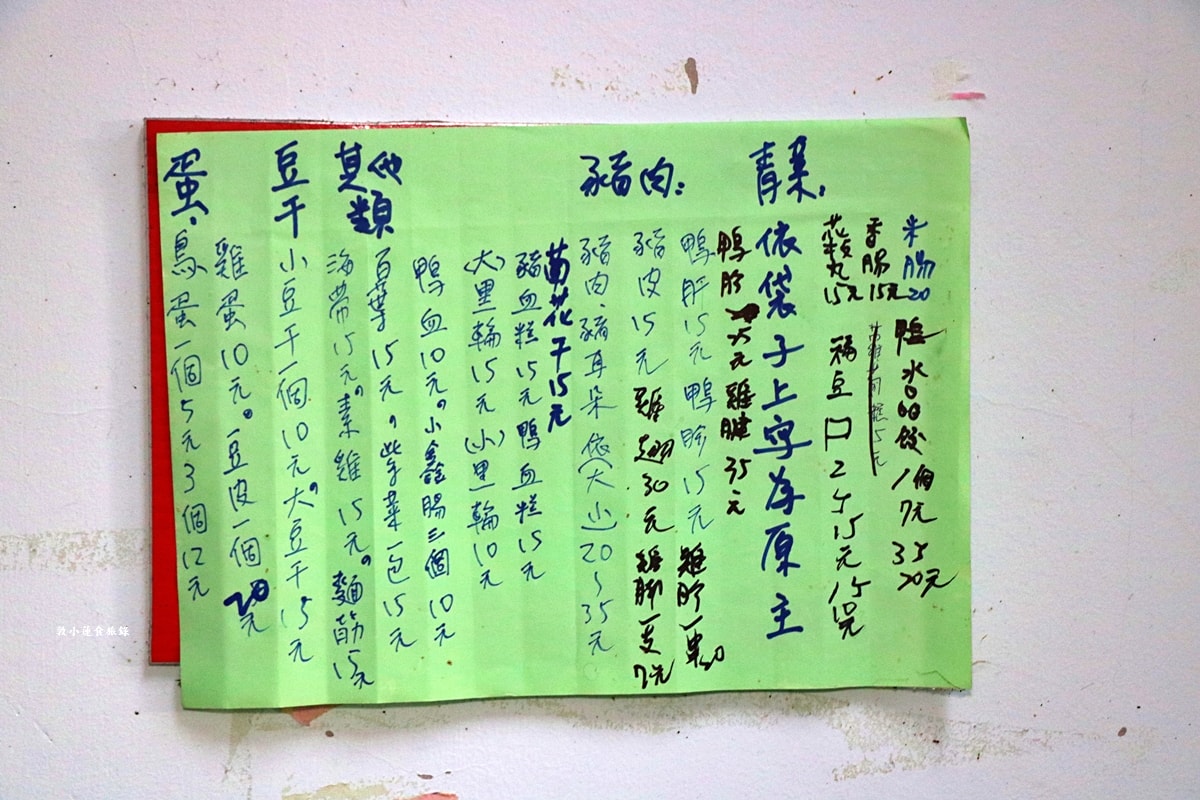 青菜:
米腸20
鴨水晶餃1個7元3個20元
香腸15元
蘋丸15元
福豆口2個15元
依袋子上字為原主
鴨肫15元雞腱35元
豬肉:
鴨肝15元鴨胗15元雞胗一串20
豬皮15元雞翅30元雞腳一支7元
豬肉、豬耳朵依(大小)20~35元
菌花干15元
豬血糕15元鴨血糕15元
(大)黑輪15元(小)黑輪10元
其他類
鴨血10元。小鑫腸三個10元
百葉15元。紫菜一包15元
海帶15元。素雞15元。麵筋15元
豆干
小豆干一個10元。大豆干15元
蛋:
雞蛋10元。豆皮一個20元
鳥蛋一個5元3個12元
敦小蓮食旅錄